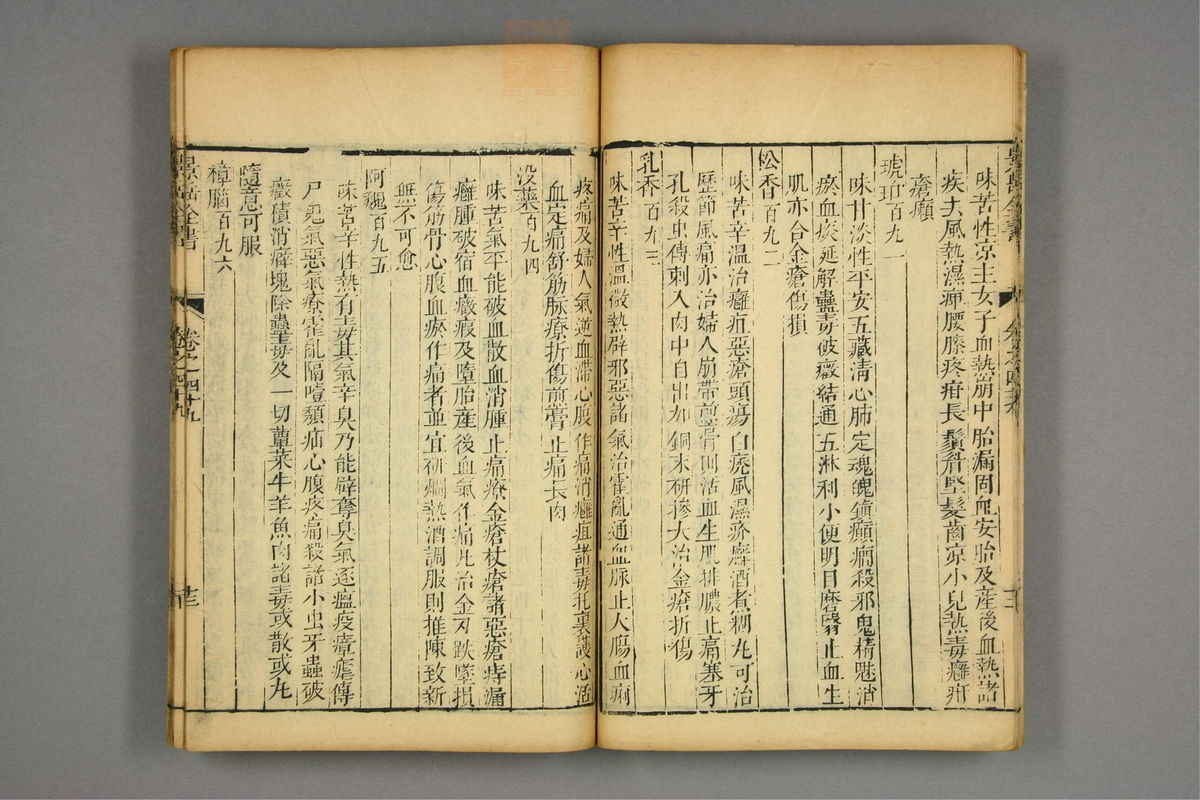 味苦性涼主女子血熱崩中胎漏固血安胎及産後血熱諸
疾去風熱濕痺腰膝疼疳長鬚眉堅髮齒涼小兒熱毒癰疳
瘡癩
琥珀百九一
味甘淡性平安五藏清心肺定魂魄鎮癲癇殺邪鬼精魅消
瘀血痰延解蠱毒破癥結通五淋利小便明目磨翳止血生
肌亦合金瘡傷損
松香百九二
味苦辛溫治癰疽惡瘡頭瘍白禿風濕疥癬酒煮糊丸可治
歷節風痛亦治婦人崩帶煎膏則活血生肌排膿止痛塞牙
孔殺虫傳刺入肉中自出加銅末研摻大治金瘡折傷
乳香百九三
味苦辛性溫微熱辟邪惡諸氣治霍亂通血脉止大腸血痢
疼痛及婦人氣逆血滯心腹作痛消癰疽諸毒托裏護心活
血定痛舒筋脉療折傷煎膏止痛長肉
没藥百九四
味苦氣平能破血散血消腫止痛療金瘡杖瘡諸惡瘡痔漏
癰腫破宿血癥瘕及墮胎産後血氣作痛凡治金刃跌墜損
傷筋骨心腹血瘀作痛者並宜研爛熱酒調服則推陳致新
無不可愈
阿魏百九五
味苦辛性熱有毒其氣辛臭乃能辟奪臭氣逐瘟疫瘴瘧傳
尸鬼氣惡氣療霍亂隔噎㿉疝心腹疼痛殺諸小虫牙蟲破
癥積消癖塊除蠱毒及一切蕈菜牛羊魚肉諸毒或散或丸
隨意可服
樟腦百九六
景岳全書
卷之四十九